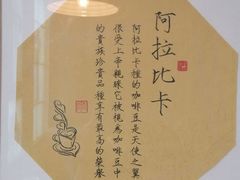 阿拉比卡
阿拉比卡種的咖啡豆是天使之翼
很受上帝親睞它被視為咖啡豆中
的貴族珍貴品種享有最高的榮譽